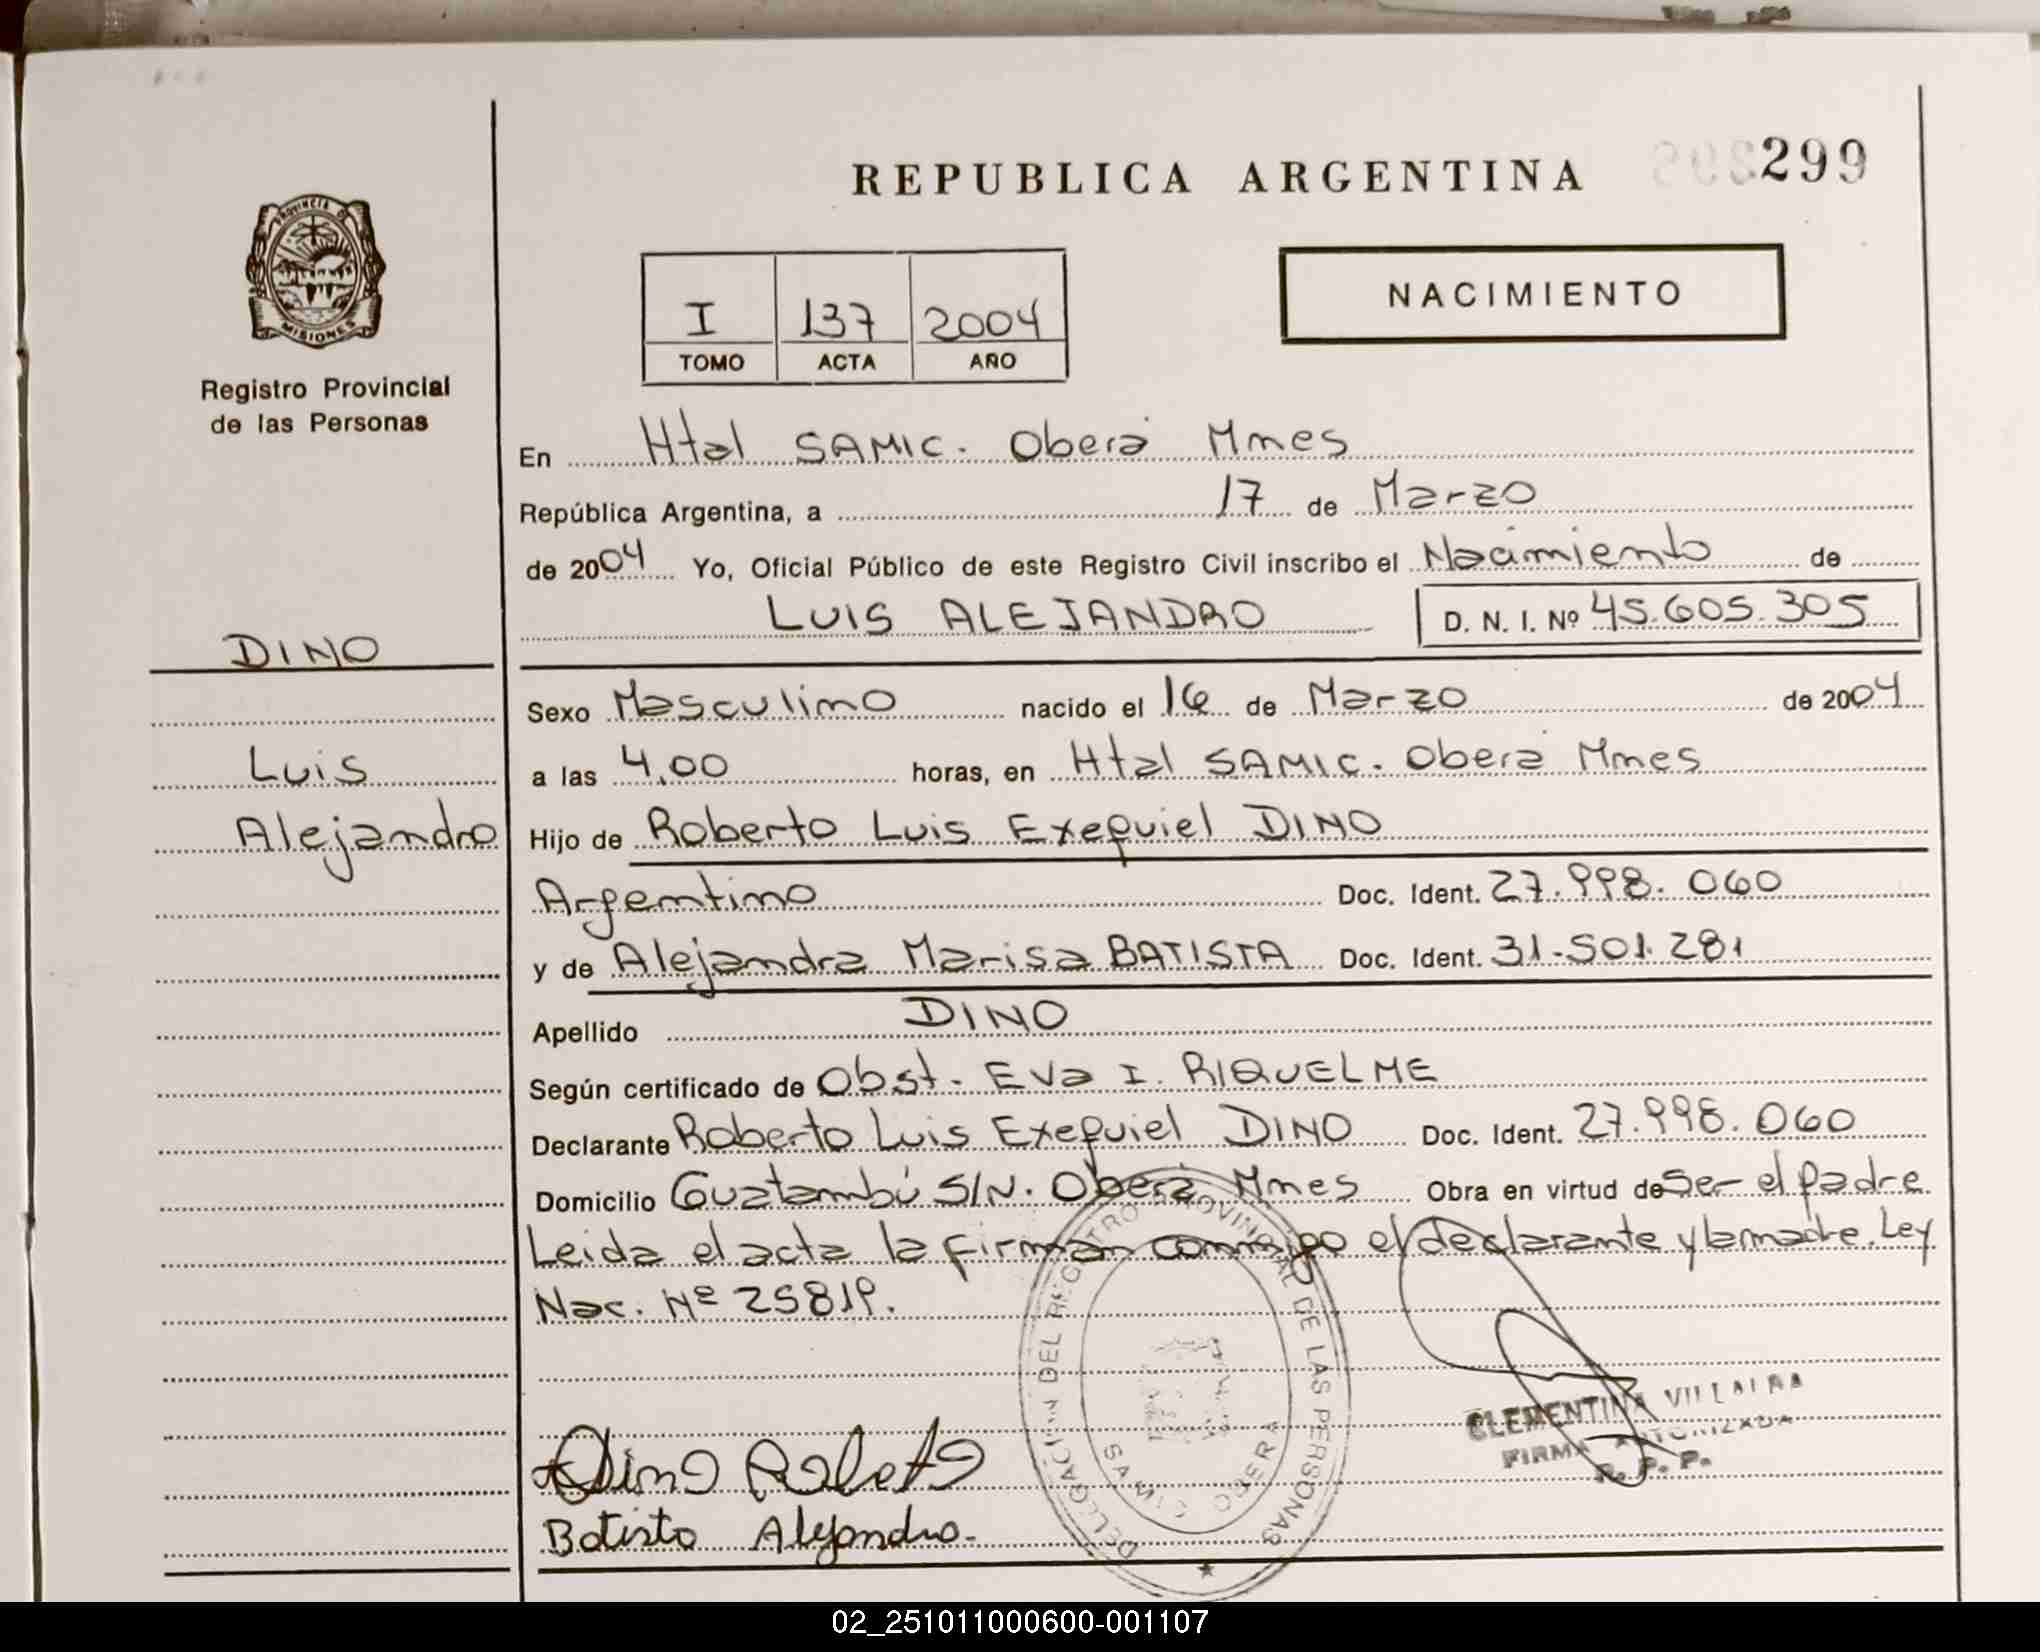 REPUBLICA ARGENTINA
299
PROVINCIA DE
MISIONES
Registro Provincial
de las Personas
I 137 2004
TOMO ACTA AÑO
NACIMIENTO
En Htal SAMIC. Oberá Mnes
República Argentina, a 17 de Marzo
de 2004 Yo, Oficial Público de este Registro Civil inscribo el Nacimiento de
LUIS ALEJANDRO D. N. I. Nº 45.605.305
DINO
Luis
Alejandro
Sexo Masculino nacido el 16 de Marzo de 2004
a las 4.00 horas, en Htal SAMIC. Oberá Mnes
Hijo de Roberto Luis Exequiel DINO
Argentino Doc. Ident. 27.998.060
y de Alejandra Marisa BATISTA Doc. Ident. 31.501.281
Apellido DINO
Según certificado de Obst. Eva I. RIQUELME
Declarante Roberto Luis Exequiel DINO Doc. Ident. 27.998.060
Domicilio Guatambú S/N. Oberá Mnes Obra en virtud de Ser el padre
Leida el acta la firman conmigo el declarante y la madre. Ley
Nac. Nº 25819.
DELEGACION DEL REGISTRO PROVINCIAL DE LAS PERSONAS
SAMIC OBERA
CLEMENTINA VILLALBA
FIRMA AUTORIZADA
R. P. P.
Dino Roberto
Batista Alejandra.
02_251011000600-001107